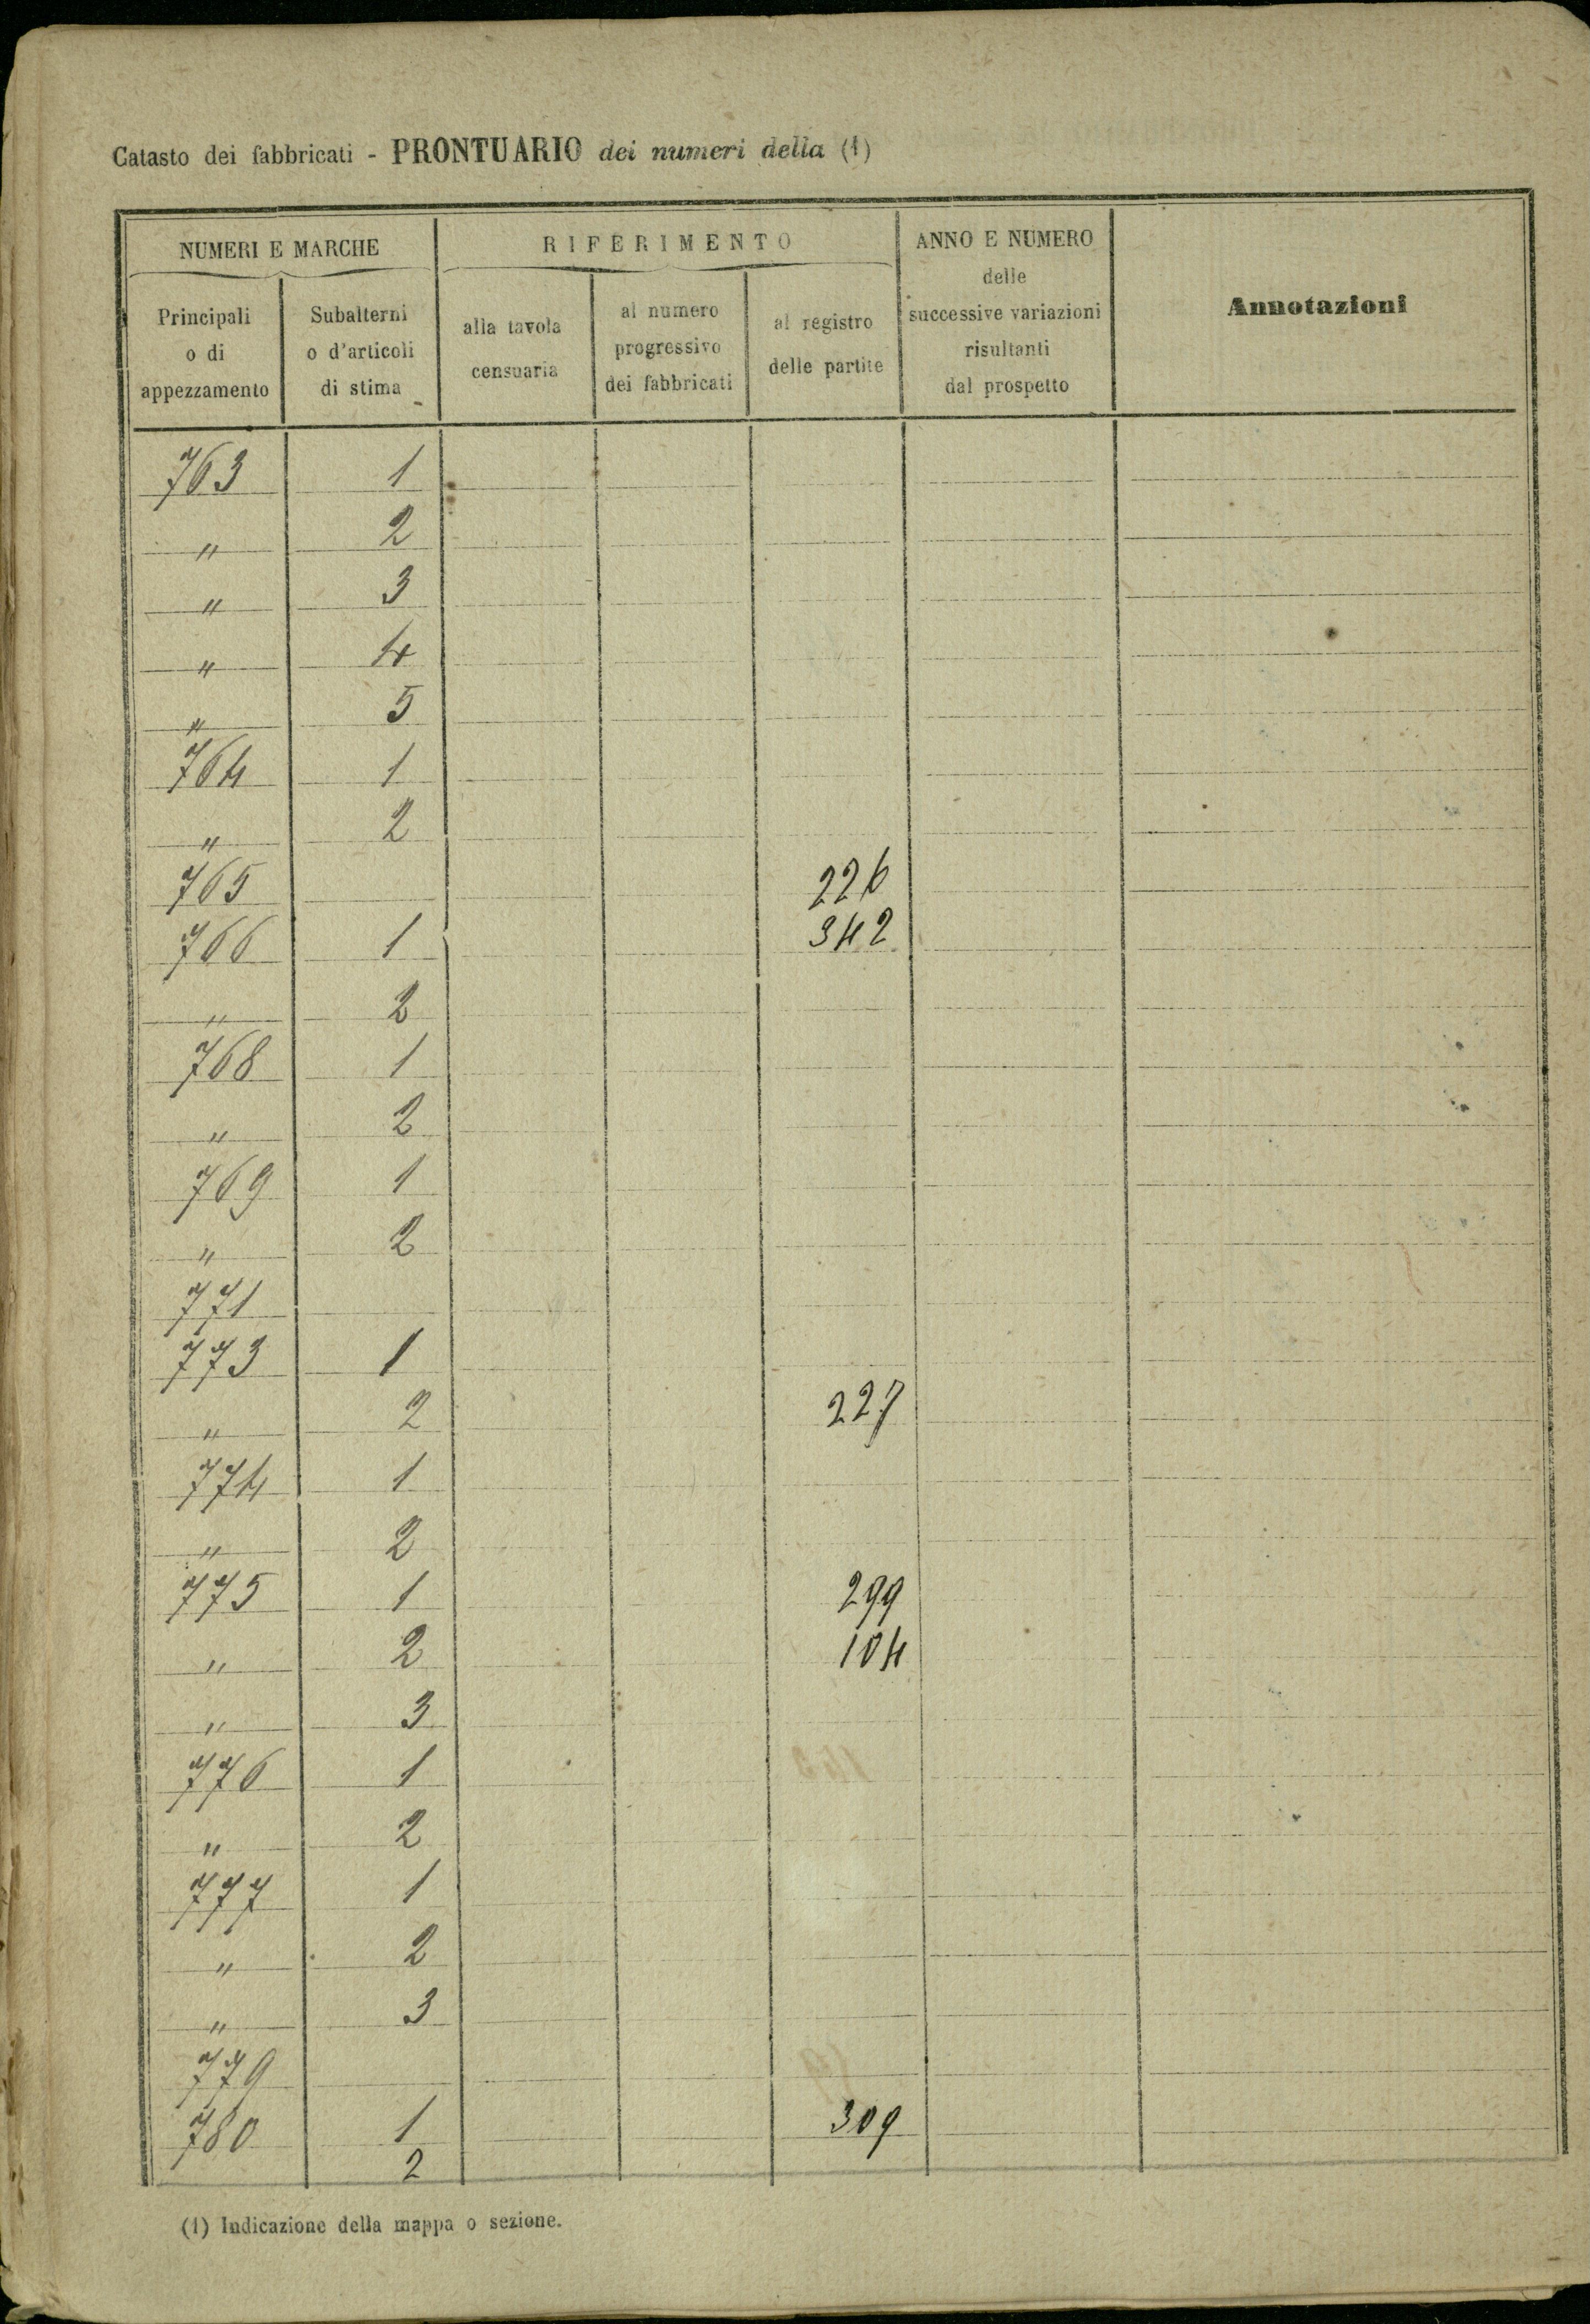 Catasto dei fabbricati - PRONTUARIO dei numeri della (1)
NUMERI E MARCHE
Principali
o di
appezzamento
Subalterni
o d'articoli
di stima
RIFERIMENTO
alla tavola
censuaria
al numero
progressivo
dei fabbricati
al registro
delle partite
ANNO E NUMERO
delle
successive variazioni
risultanti
dal prospetto
Annotazioni
763 1
" 2
" 3
" 4
" 5
764 1
" 2
765 226
766 1 342
" 2
768 1
" 2
769 1
" 2
771
773 1
" 2 227
774 1
" 2
775 1 299
" 2 104
" 3
776 1
" 2
777 1
" 2
" 3
779
780 1 309
2
(1) Indicazione della mappa o sezione.